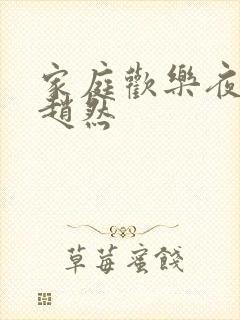 家庭歡樂夜
趙然
草莓蜜餞